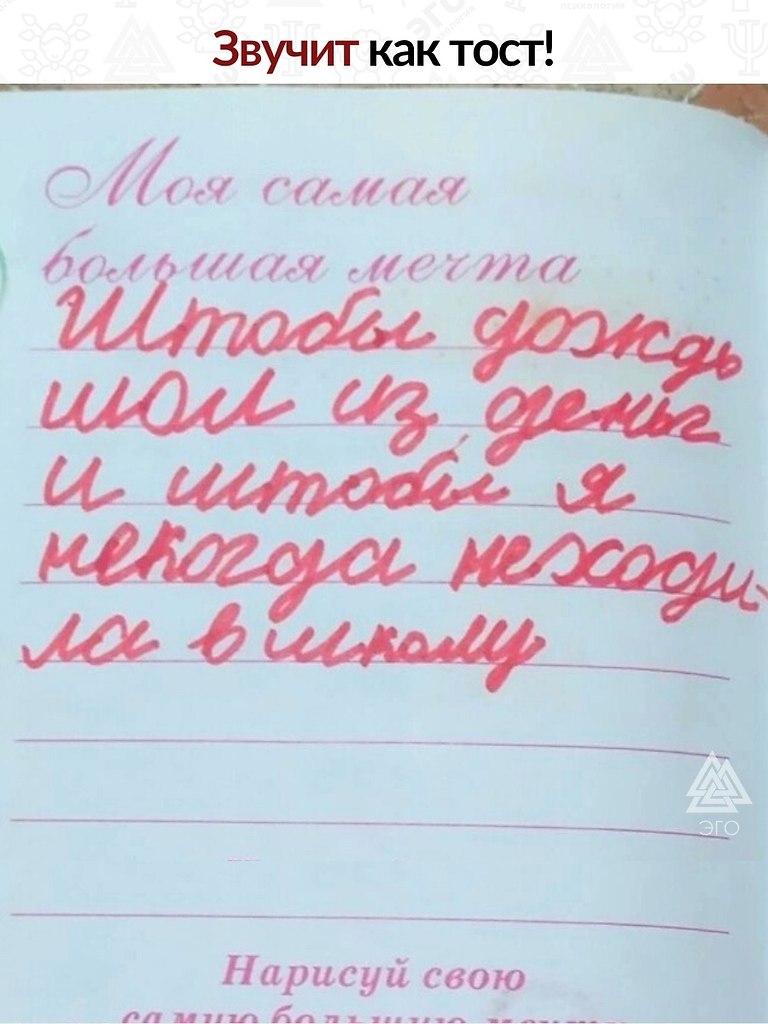 Звучит как тост!
Моя самая
большая мечта
Штобы дождь
шол из деньг
и штобы я
некогда неходи-
ла в школу
ЭГО
Нарисуй свою
самую большую мечту